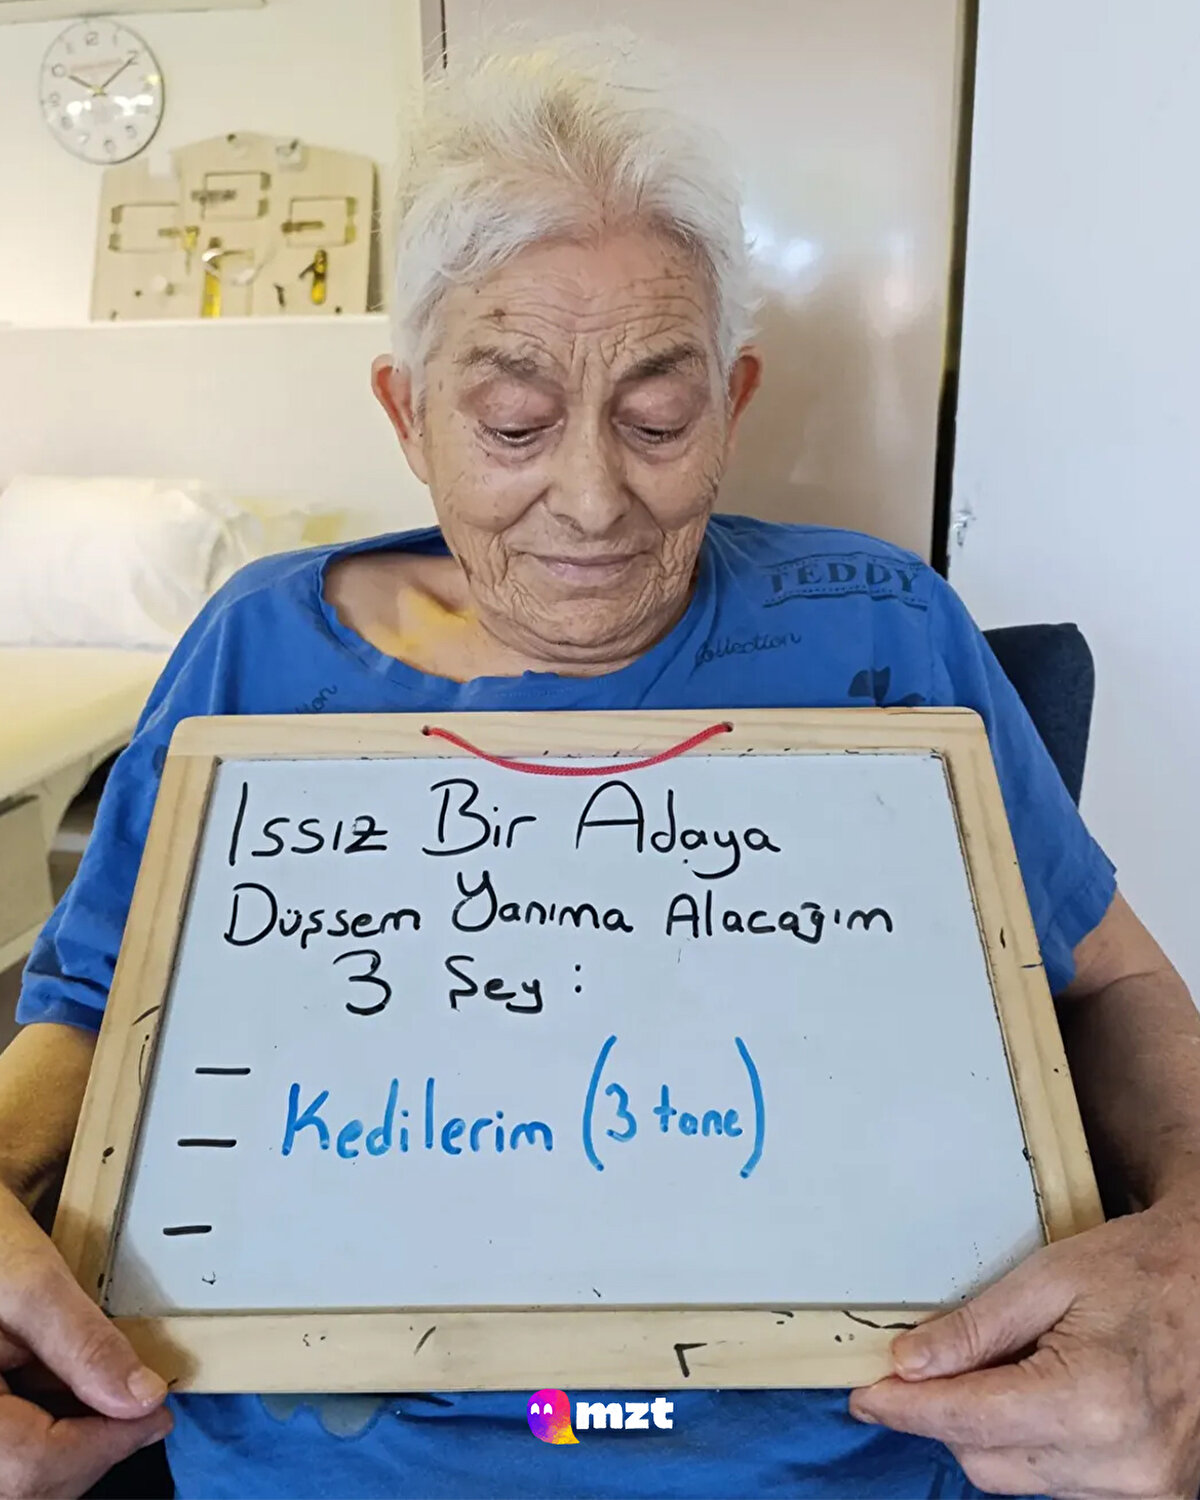 TEDDY
Collection
Issız Bir Adaya
Düşsem Yanıma Alacağım
3 Şey :
—
— Kedilerim (3 tane)
—
mzt